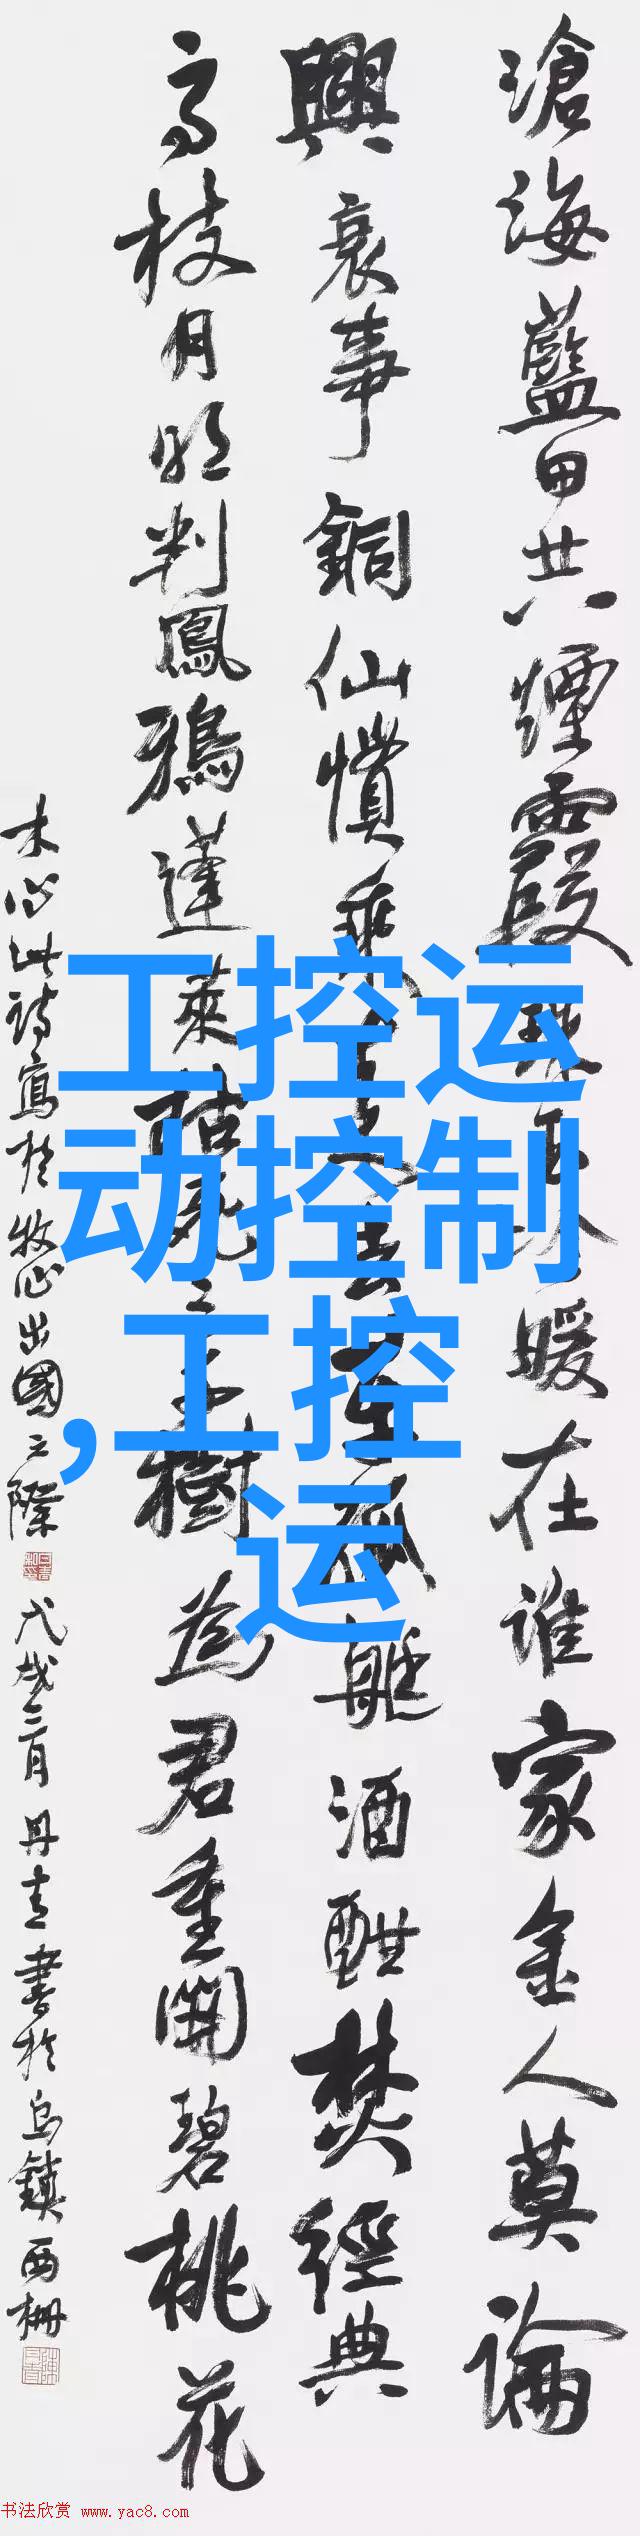 滄海藍田共煙霞暖在谁家金人莫論
興衰事銅仙慣艇酒酣焚經典
高枝月明判鳳鴉蓬萊枯死三千樹為君重開碧桃花
木心此詩寫於牧心出國之際 戊戌三月丹青書於烏鎮西柵
工控运
动控制
,工控
运
书法欣赏 www.yac8.com